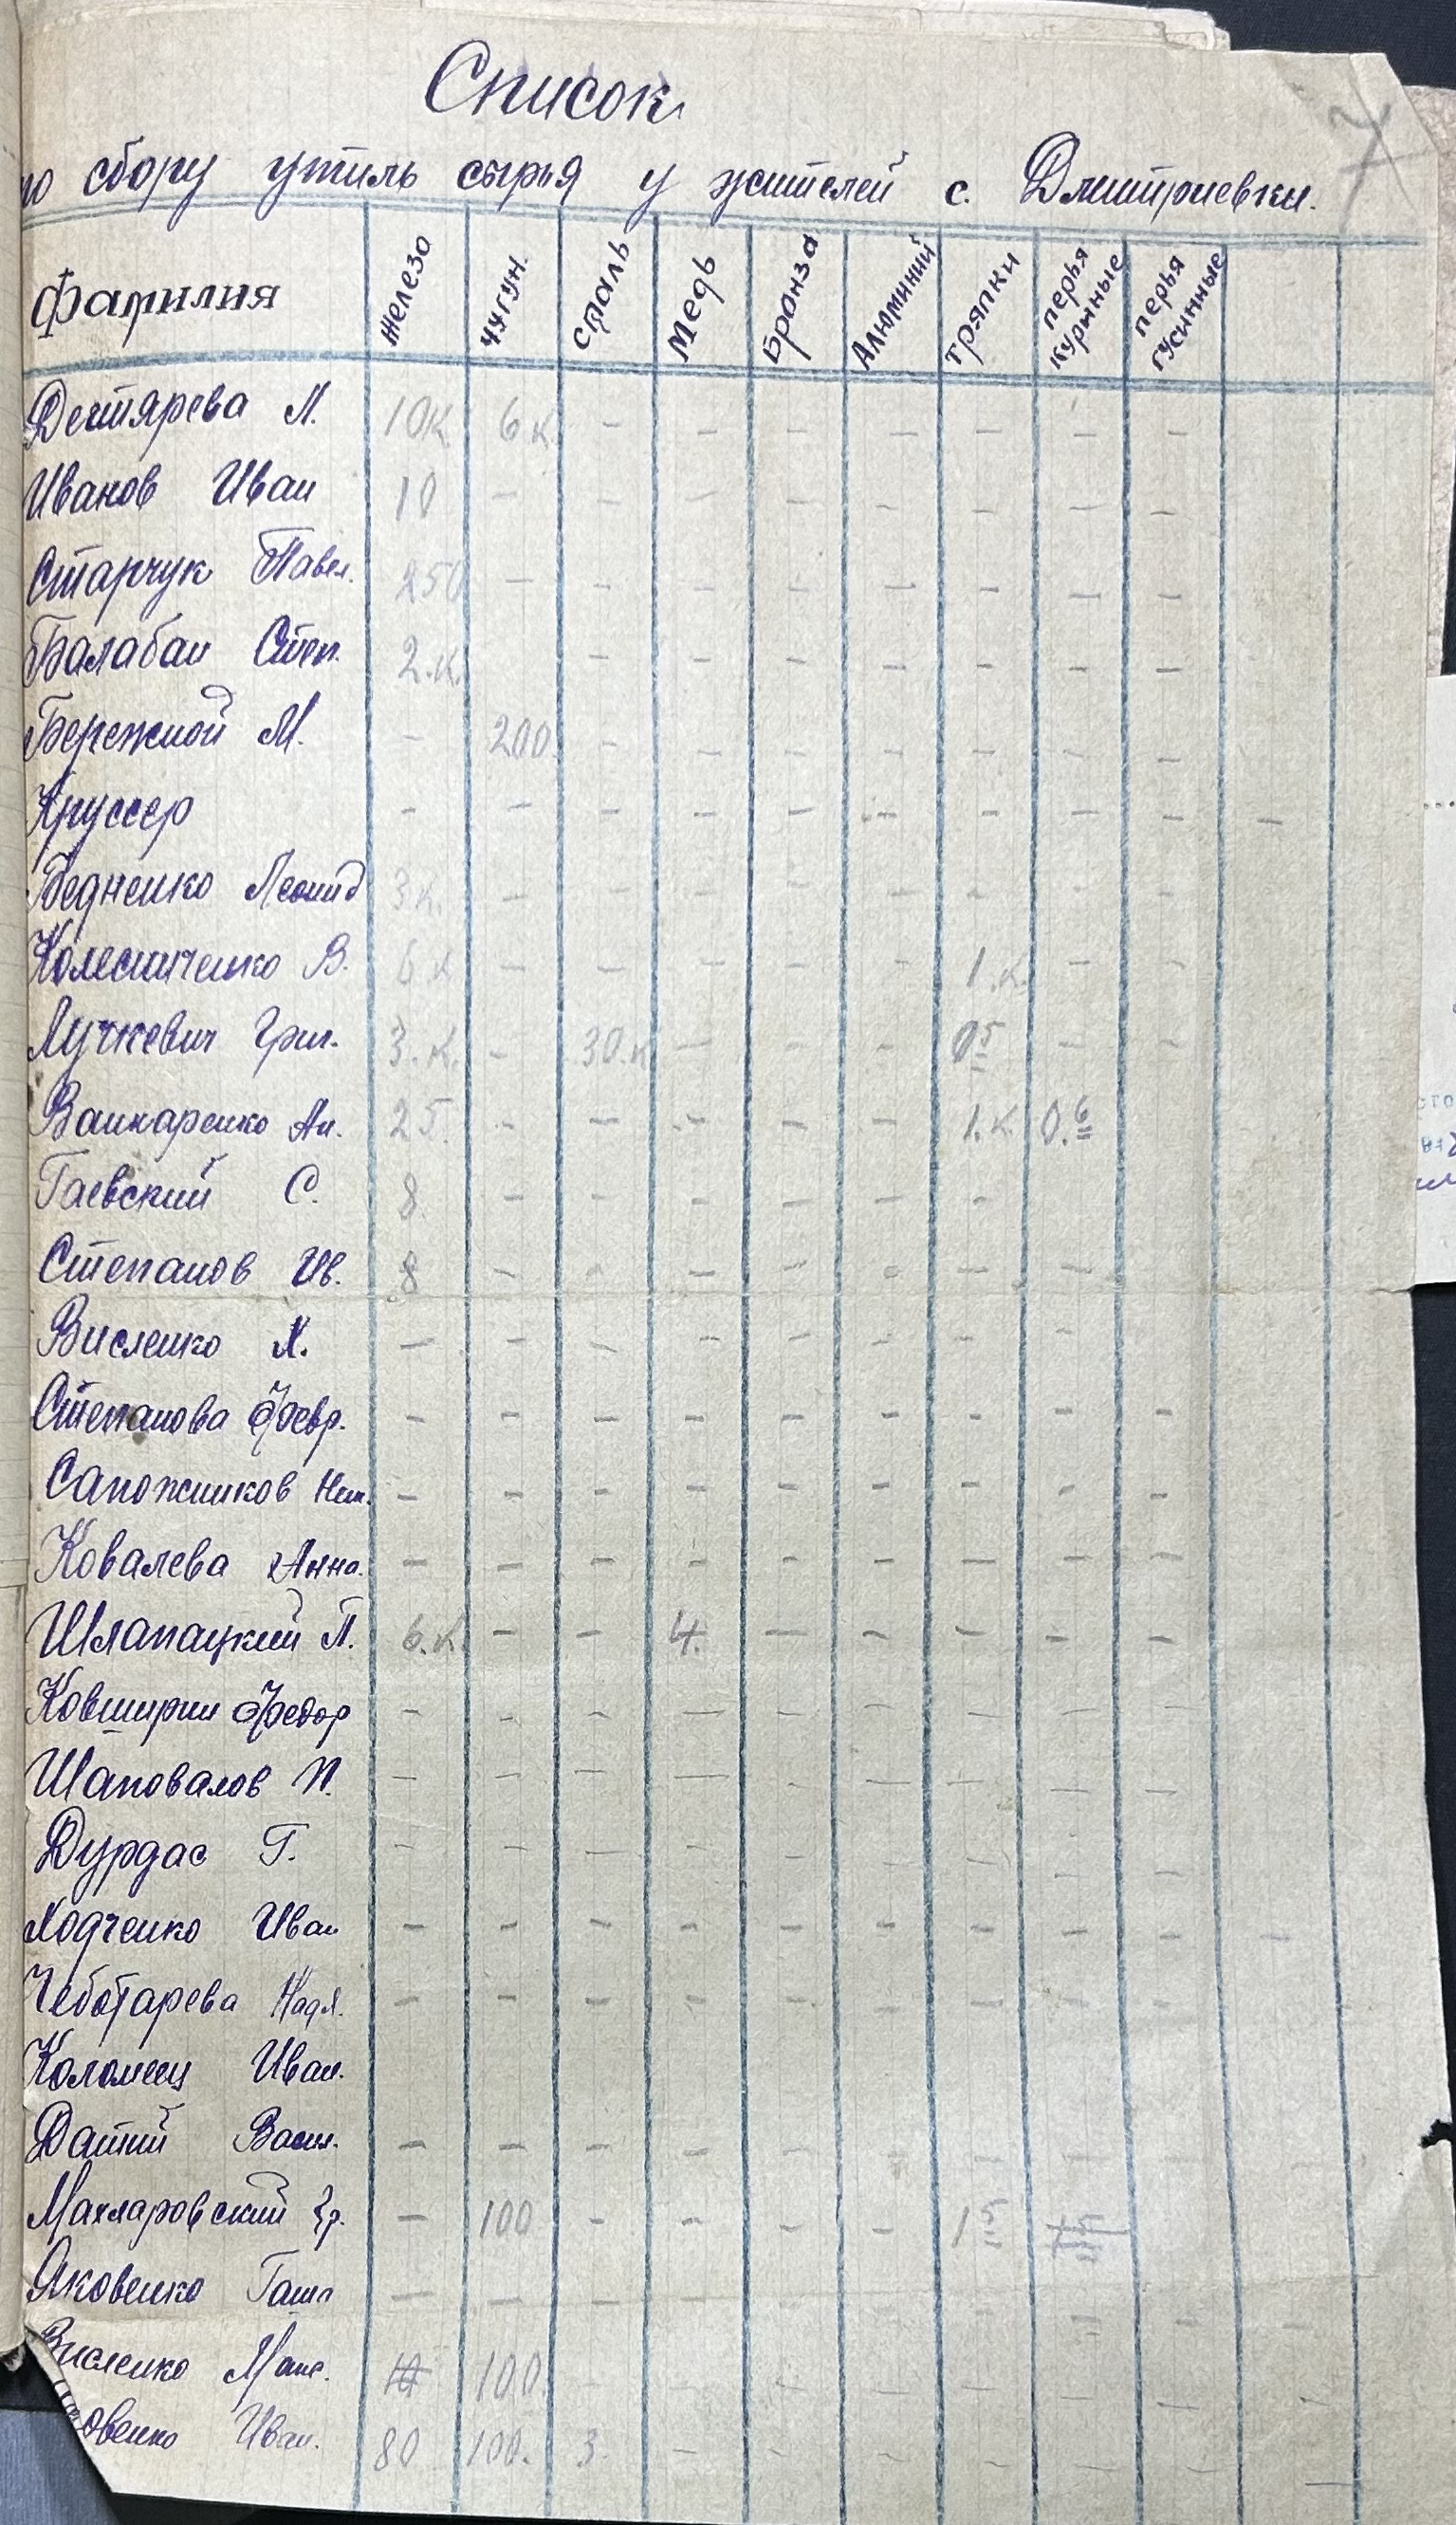 7
Список
по сбору утиль сырья у жителей с. Дмитриевки.
Фамилия железо чугун. сталь Медь Бронза Алюминий тряпки перья куриные перья гусинные
Дегтярева Л. 10к. 6.к. - - - - - - -
Иванов Иван 10 - - - - - - - -
Старчук Павел. 250 - - - - - - - -
Балабан Степ. 2.к. - - - - - - -
Бережной М. - 200. - - - - - - -
Круссер - - - - - - - - - -
Бедненко Леонид 3к. - - - - - - - -
Колесниченко В. 6.к - - - - - 1.к. - -
Лучкевич Григ. 3.к. - 30.к - - - 0 5 - -
Ванжаренко Ан. 25. - - - - - 1.к 0.6
Гаевский С. 8. - - - - - -
Степанов Ив. 8 - - - - - - -
Висленко Х. - - - - - - - -
Степанова Февр. - - - - - - - - -
Сапожников Ник. - - - - - - - - -
Ковалева Анна. - - - - - - - - -
Шлапацкий П. 6.к. - - 4. - - - - -
Ковширин Федор - - - - - - - - -
Шаповалов И. - - - - - - - - -
Дурдас Г. - - - - - - - - -
Ходченко Иван - - - - - - - - - -
Чеботарева Надя. - - - - - - - - -
Коломиец Иван.
Датий Васил. - - - - - - - - -
Махларовский Гр. - 100 - - - - 1 5
Яковенко Ганна - - - - - - - - -
Висленко Макс. 10 100. - - - - - - - -
овенко Иван. 80 100. 3. - - - - - - -